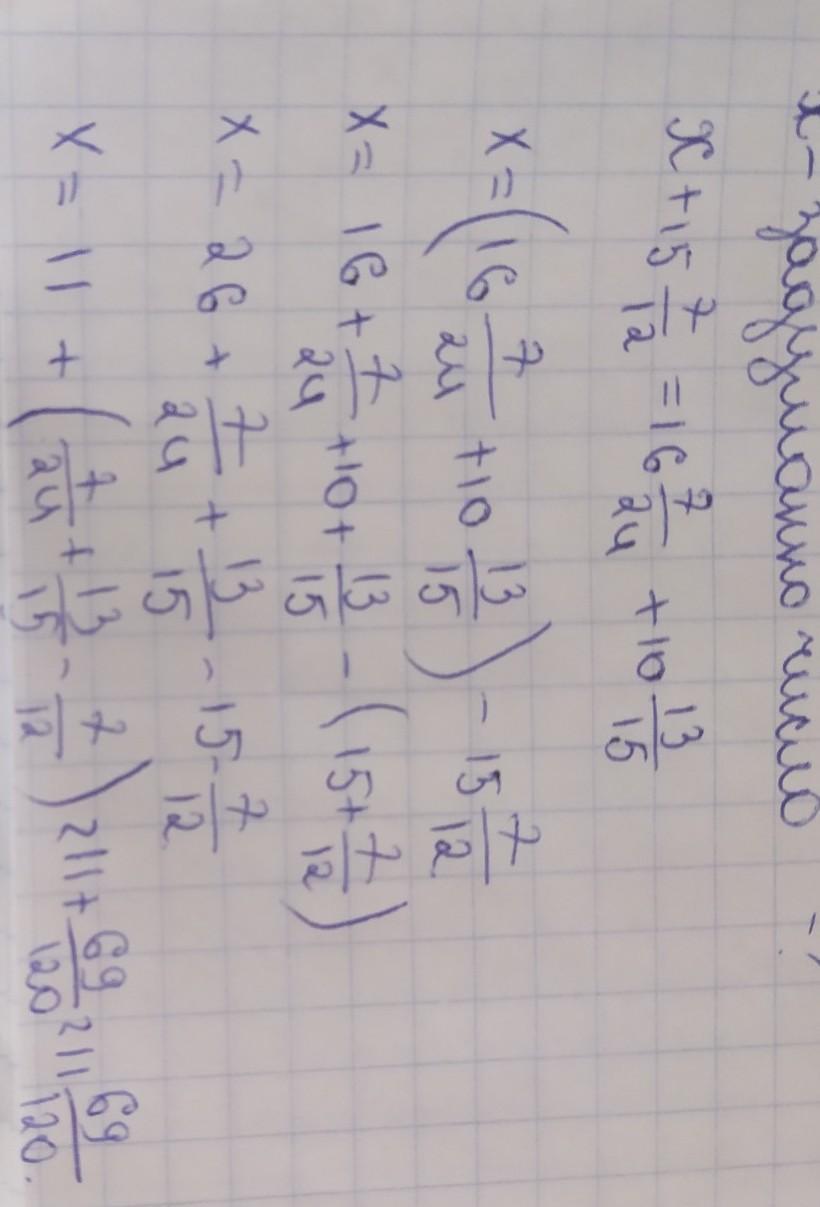 x - задуманно число
x + 15 7/12 = 16 7/24 + 10 13/15
x = (16 7/24 + 10 13/15) - 15 7/12
x = 16 + 7/24 + 10 + 13/15 - (15 + 7/12)
x = 26 + 7/24 + 13/15 - 15 - 7/12
x = 11 + (7/24 + 13/15 - 7/12) = 11 + 69/120 = 11 69/120.